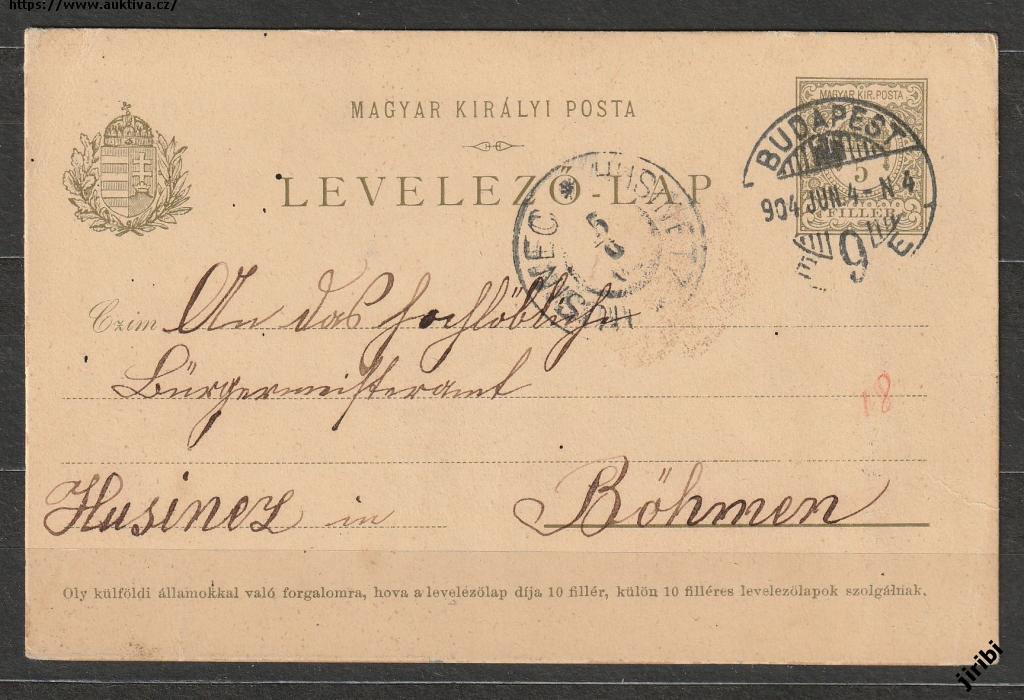 https://www.auktiva.cz/
MAGYAR KIRÁLYI POSTA
LEVELEZŐ-LAP
MAGYAR KIR. POSTA
5
FILLÉR
BUDAPEST
904 JUN. 4 - N 4
9
HUSINEC * HUSINETZ
Czim An das hochlöbliche
Bürgermeisteramt
Husinez in Böhmen
18
Oly külföldi államokkal való forgalomra, hova a levelezőlap díja 10 fillér, külön 10 filléres levelezőlapok szolgálnak.
jiribi